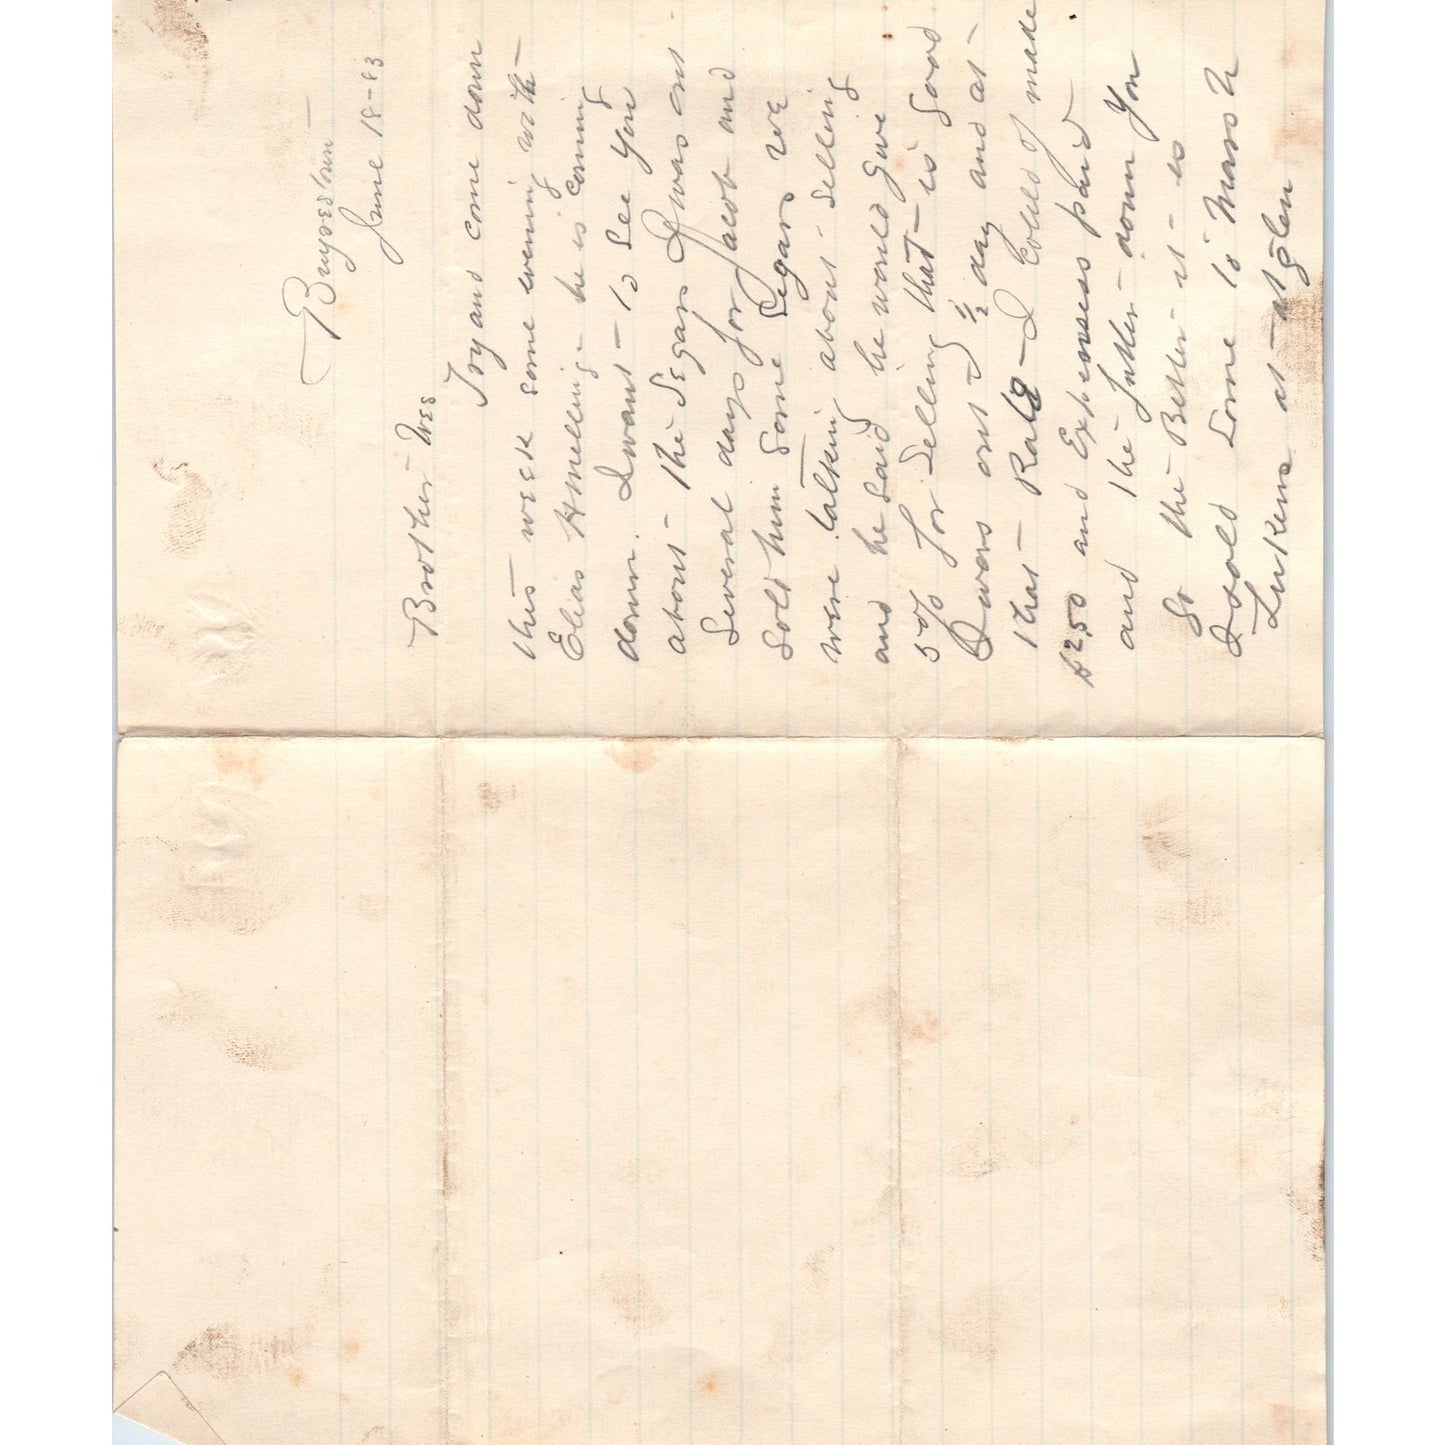 June 18-83
Brother Wes
Try and come down
this week some evening with
Elias Hmelling he is coming
down. I want to See you
about the Segars I was out
Several days for Jacob and
Sold him Some Segars We
were talking about Selling
and he Said he would give
5% for Selling that is good
I was out 2 ½ day and at
that Rate I Could of made
$2,50 and Expenses paid
and the father down You
Go the Better it is
I Sold Some To Marsh
Lukens at glen